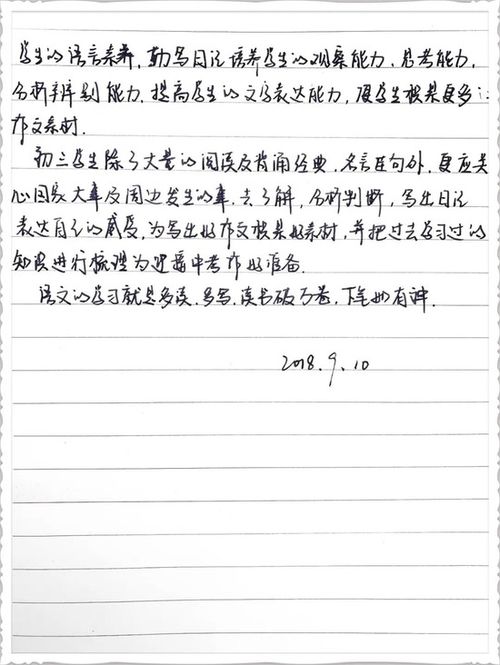 学生的语言素养，勤写日记培养学生的观察能力、思考能力，
分析辨别能力，提高学生的文字表达能力，使学生积累更多
作文素材．
初三学生除了大量的阅读及背诵经典，名言臣句外，更应关
心国家大事及周边发生的事，去了解，分析判断，写出日记
表达自己的感受，为写出好作文积累好素材，并把过去学习过的
知识进行梳理为迎接中考作好准备．
语文的学习就是多读．多写．读书破万卷，下笔如有神．
2018.9.10